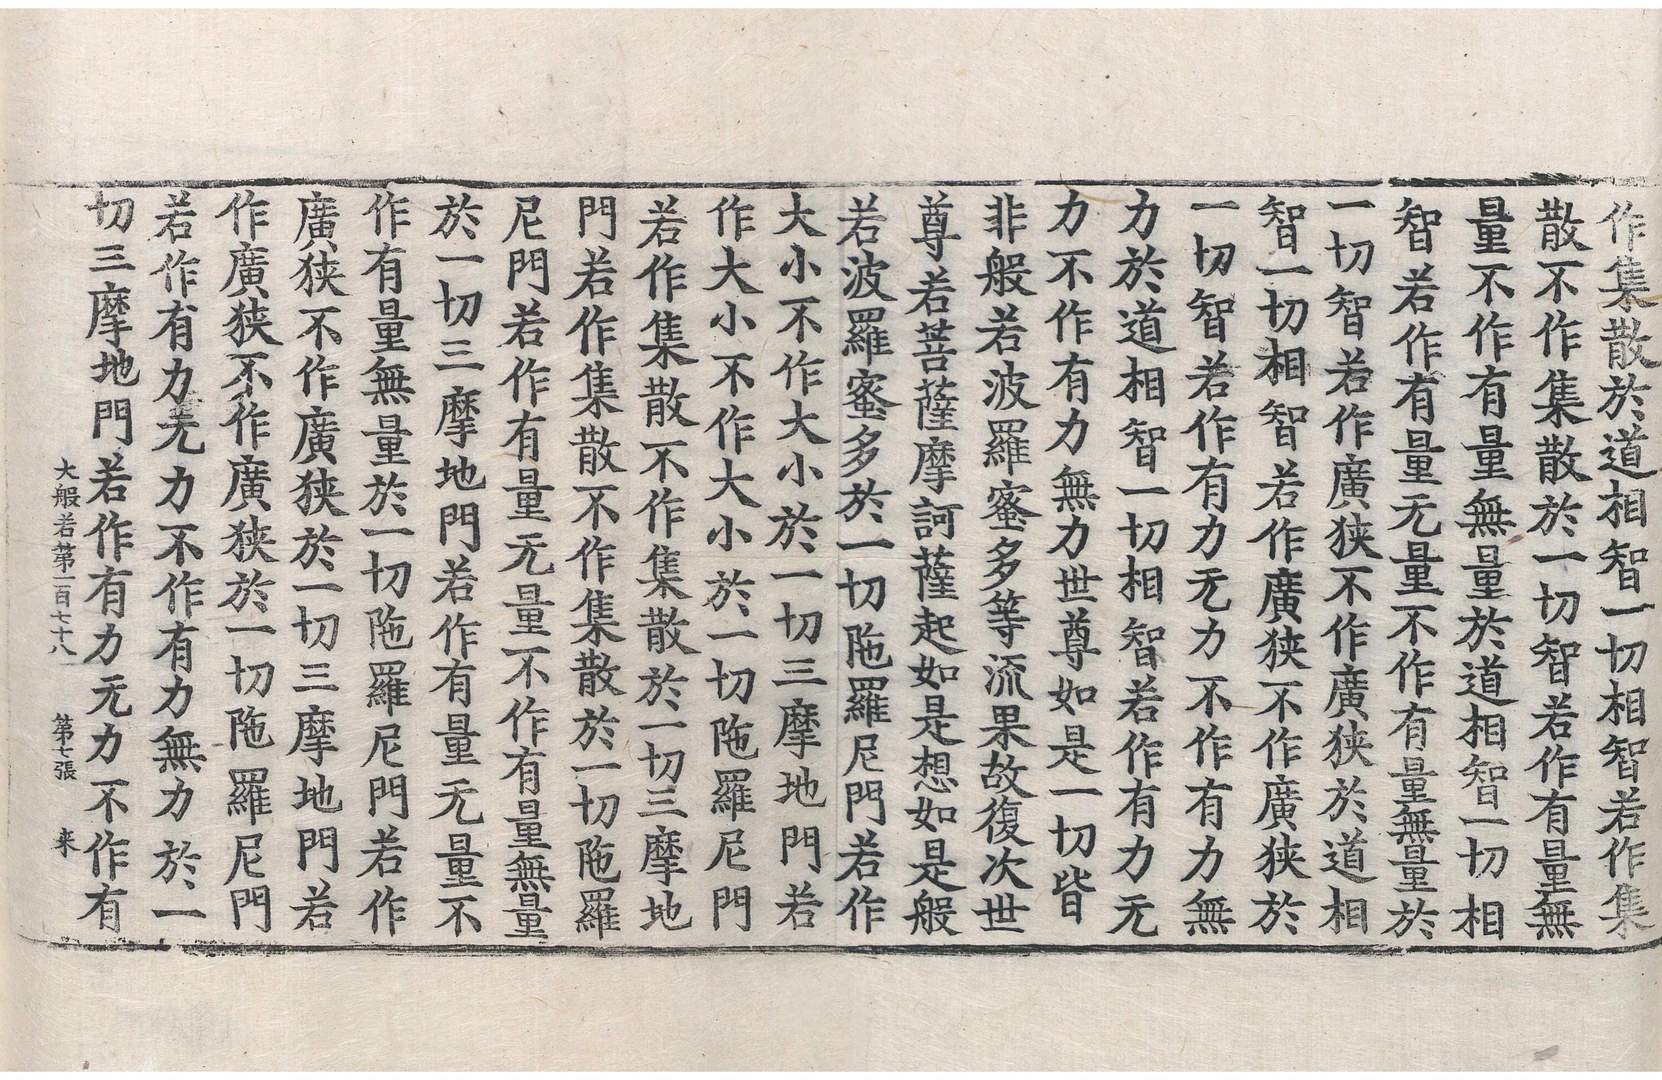 作集散於道相智一切相智若作集
散不作集散於一切智若作有量無
量不作有量無量於道相智一切相
智若作有量无量不作有量無量於
一切智若作廣狹不作廣狹於道相
智一切相智若作廣狹不作廣狹於
一切智若作有力无力不作有力無
力於道相智一切相智若作有力无
力不作有力無力世尊如是一切皆
非般若波羅蜜多等流果故復次世
尊若菩薩摩訶薩起如是想如是般
若波羅蜜多於一切陁羅尼門若作
大小不作大小於一切三摩地門若
作大小不作大小於一切陁羅尼門
若作集散不作集散於一切三摩地
門若作集散不作集散於一切陁羅
尼門若作有量无量不作有量無量
於一切三摩地門若作有量无量不
作有量無量於一切陁羅尼門若作
廣狹不作廣狹於一切三摩地門若
作廣狹不作廣狹於一切陁羅尼門
若作有力无力不作有力無力於一
切三摩地門若作有力无力不作有
大般若第一百七十八　第七張　来